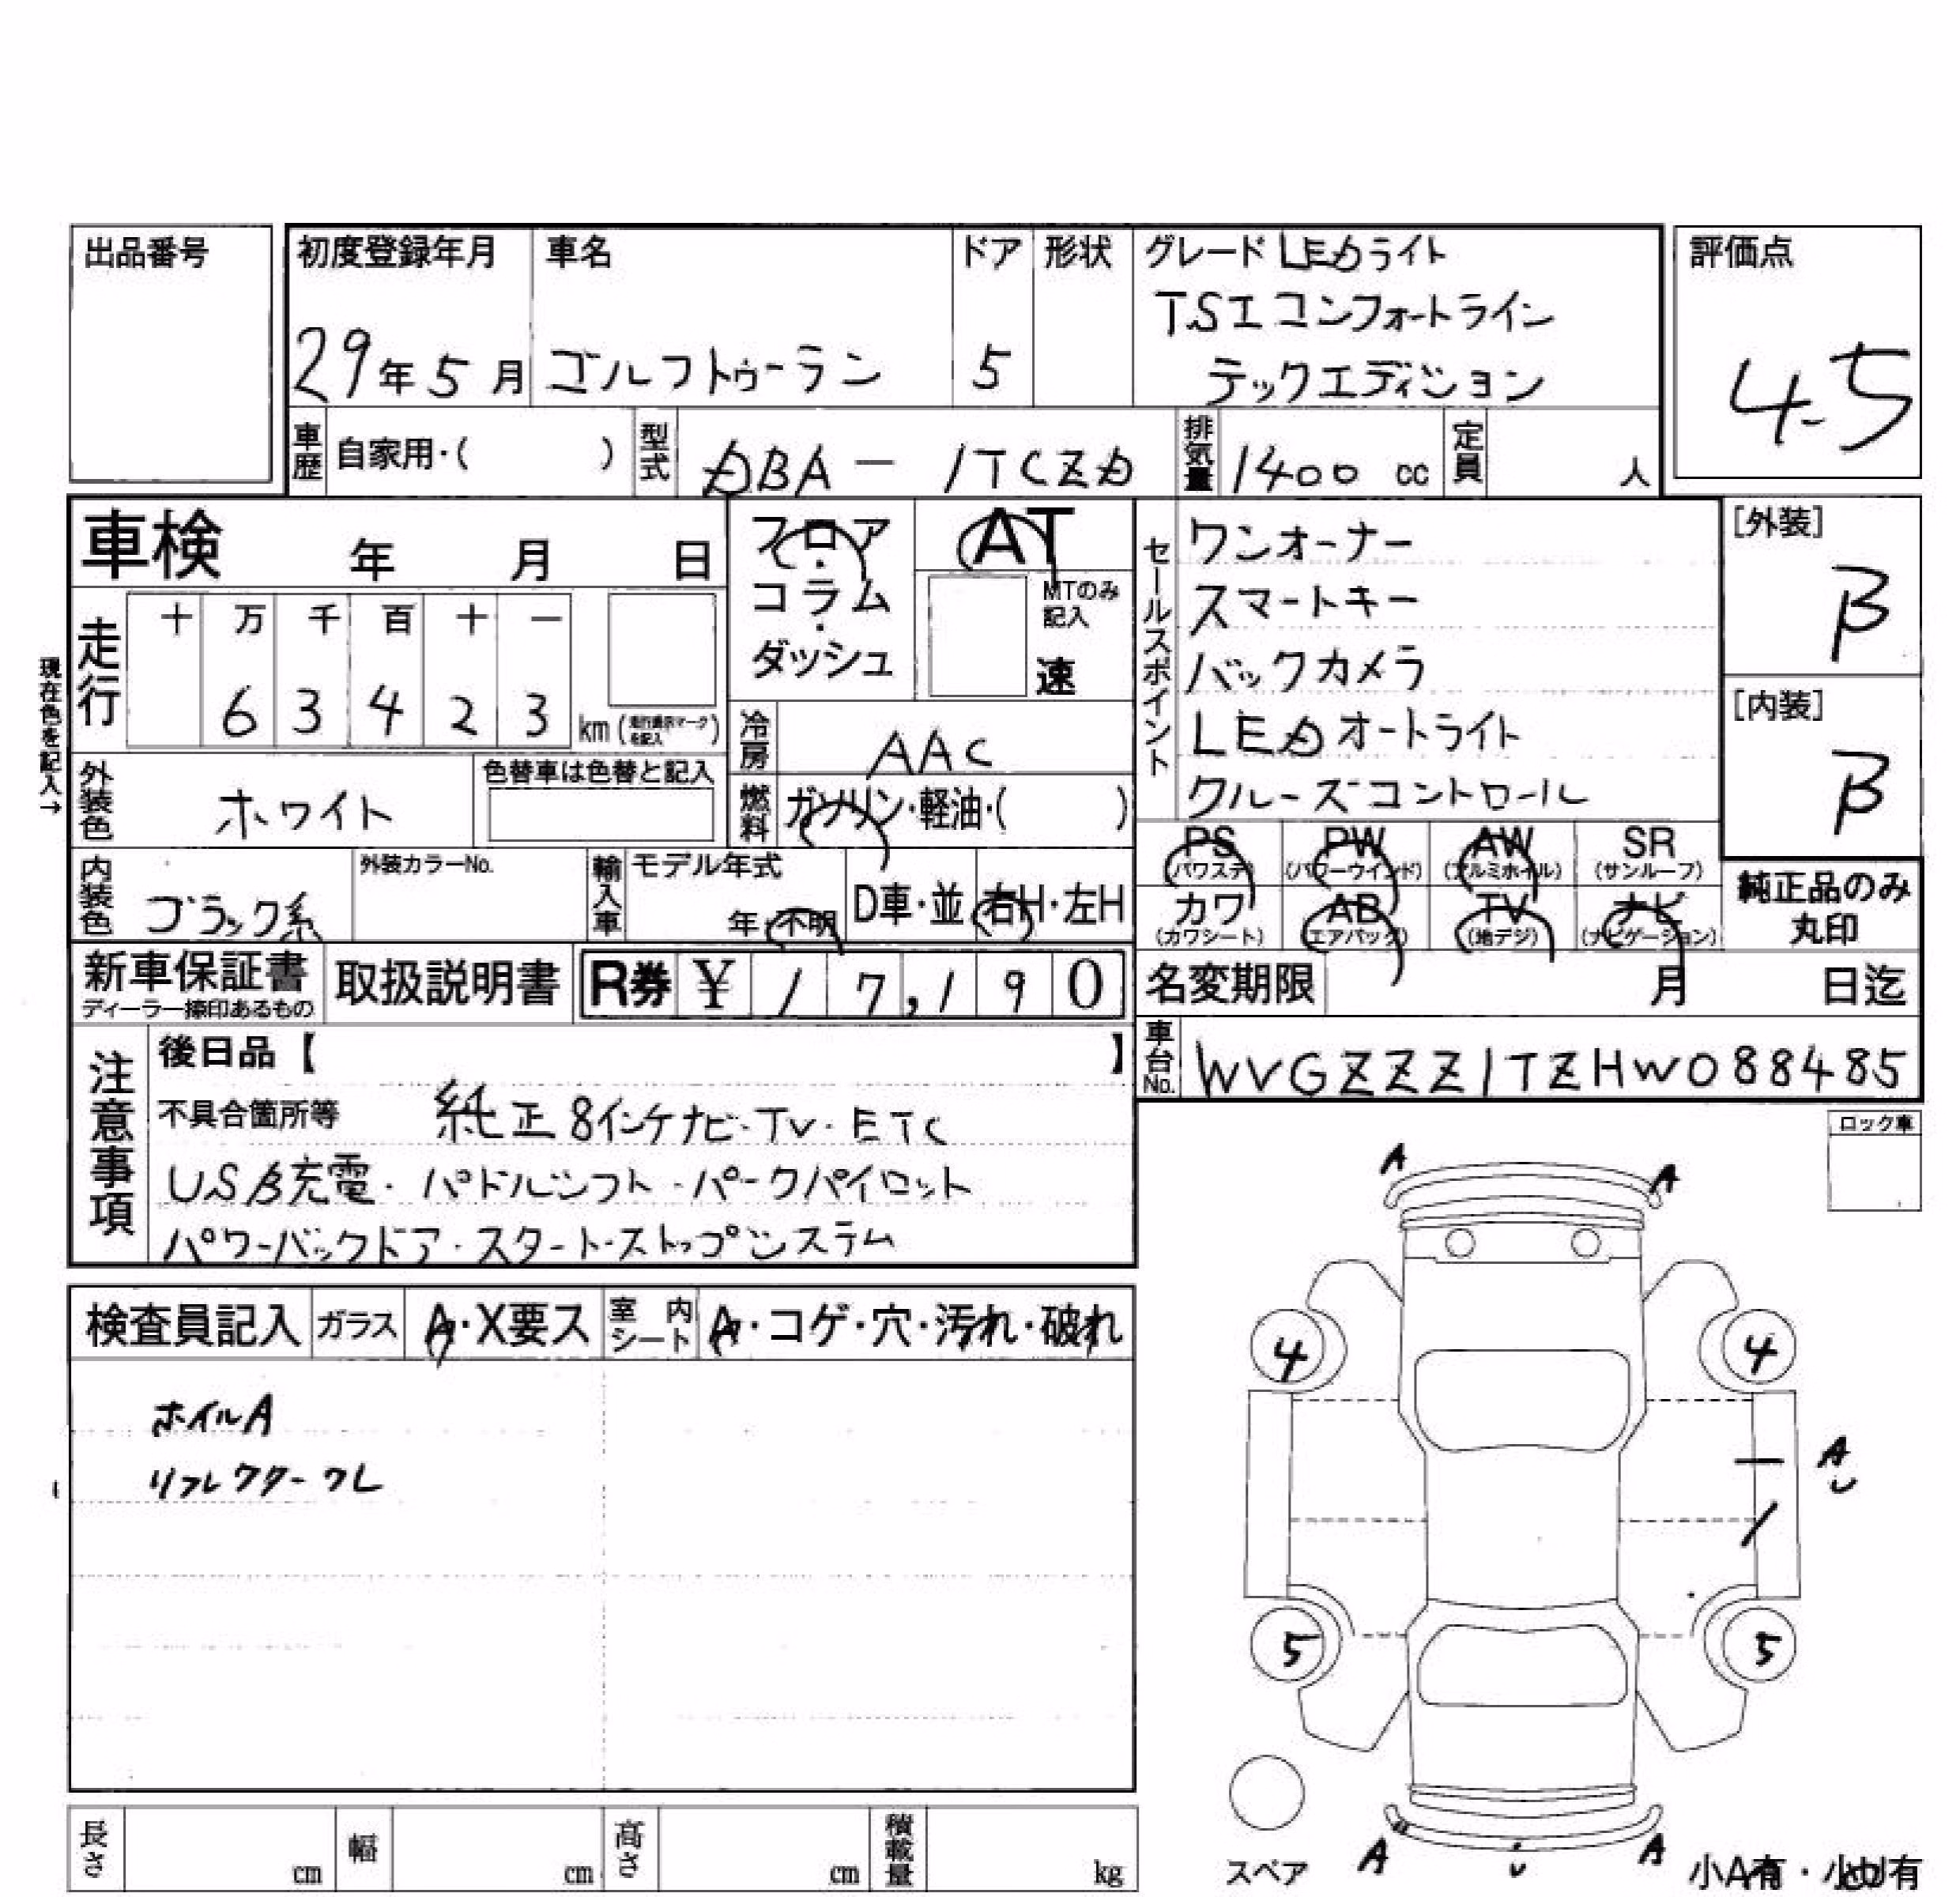 出品番号
初度登録年月 車名 ドア 形状 グレード LEDライト
評価点
TSI コンフォートライン
29年5月 ゴルフトゥーラン 5 テックエディション
4.5
車歴 自家用・( ) 型式 DBA - 1TCZD 排気量 1400 cc 定員 人
車検 年 月 日
フロア・コラム・ダッシュ
AT
MTのみ記入
速
セールスポイント
ワンオーナー
スマートキー
バックカメラ
LEDオートライト
クルーズコントロール
[外装] B
[内装] B
現在色を記入→
走行 十 万 千 百 十 一
6 3 4 2 3 km
冷房 AAC
外装色 ホワイト 色替車は色替と記入
燃料 ガソリン・軽油・( )
PS (パワステ) PW (パワーウインド) AW (アルミホイル) SR (サンルーフ)
カワ (カワシート) AB (エアバッグ) TV (地デジ) ナビ (ナビゲーション)
純正品のみ
丸印
内装色 ブラック系 外装カラーNo. 輸入車 モデル年式 年・不明 D車・並 右H・左H
新車保証書 取扱説明書 R券 ¥ 17,190
ディーラー捺印あるもの
名変期限 月 日迄
車台No. WVGZZZ1TZHW088485
注意事項
後日品【 】
不具合箇所等 純正8インチナビ・TV・ETC
USB充電・パドルシフト・パークパイロット
パワーバックドア・スタートストップシステム
ロック車
検査員記入 ガラス A・X要ス 室内シート A・コゲ・穴・汚れ・破れ
ホイルA
リフレクターワレ
A A
4 4
A
U
5 5
A U A
スペア
小A有・小U有
長さ cm 幅 cm 高さ cm 積載量 kg